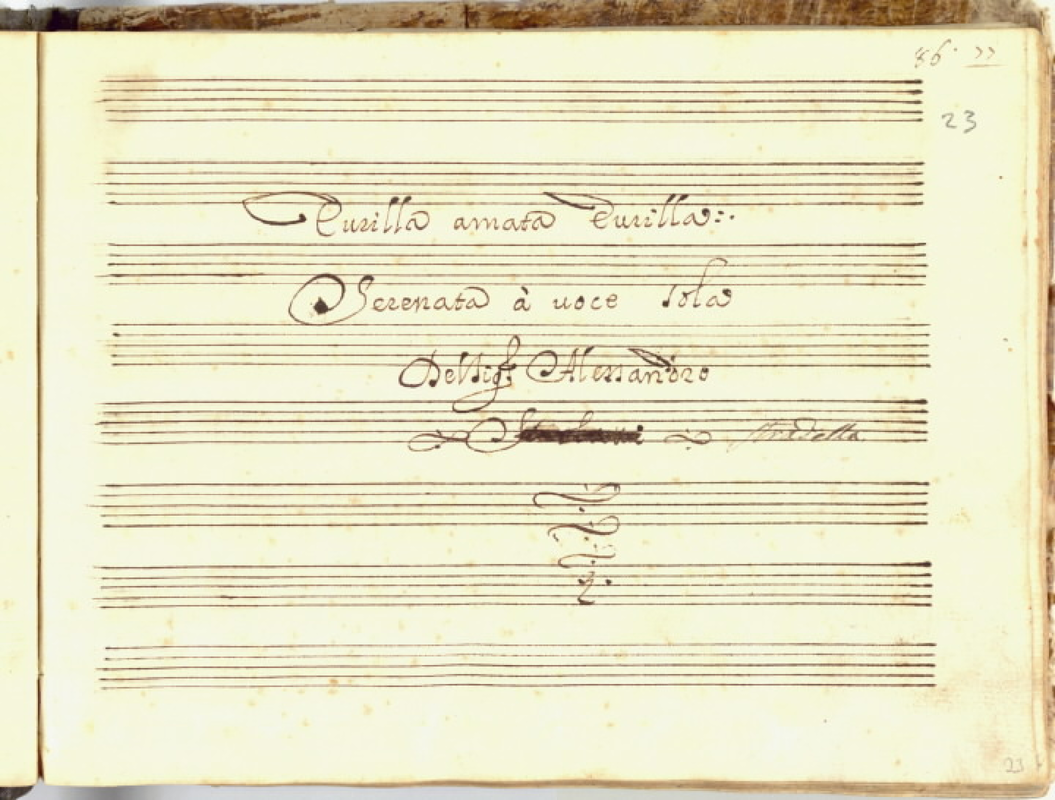 23
Eurilla amata Eurilla
Serenata à uoce sola
Del Sig.r Alessandro
Stradella
23